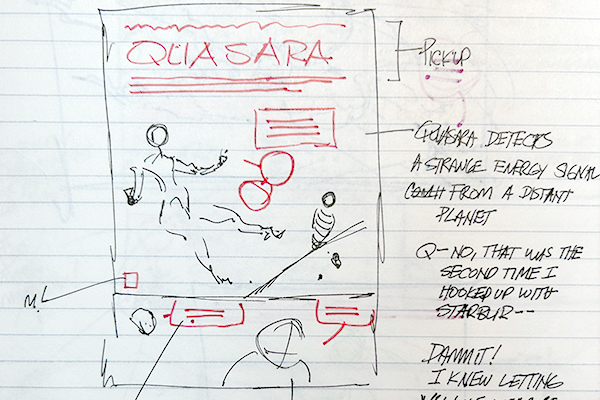 QUASARA
PICKUP
QUASARA DETECTS
A STRANGE ENERGY SIGNAL
FROM A DISTANT
PLANET
Q- NO, THAT WAS THE
SECOND TIME I
HOOKED UP WITH
M.L
DAMMIT!
I KNEW LETTING